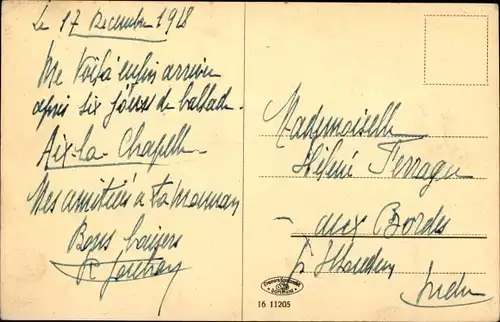 Le 17 Decembre 1918
Me voilà enfin arrivé
après six jours de ballade.
Aix-la Chapelle
Mes amitiés à ta maman
Bons baisers
Mademoiselle
Hélène Ferragu
aux Bordes
Indre
16 11205